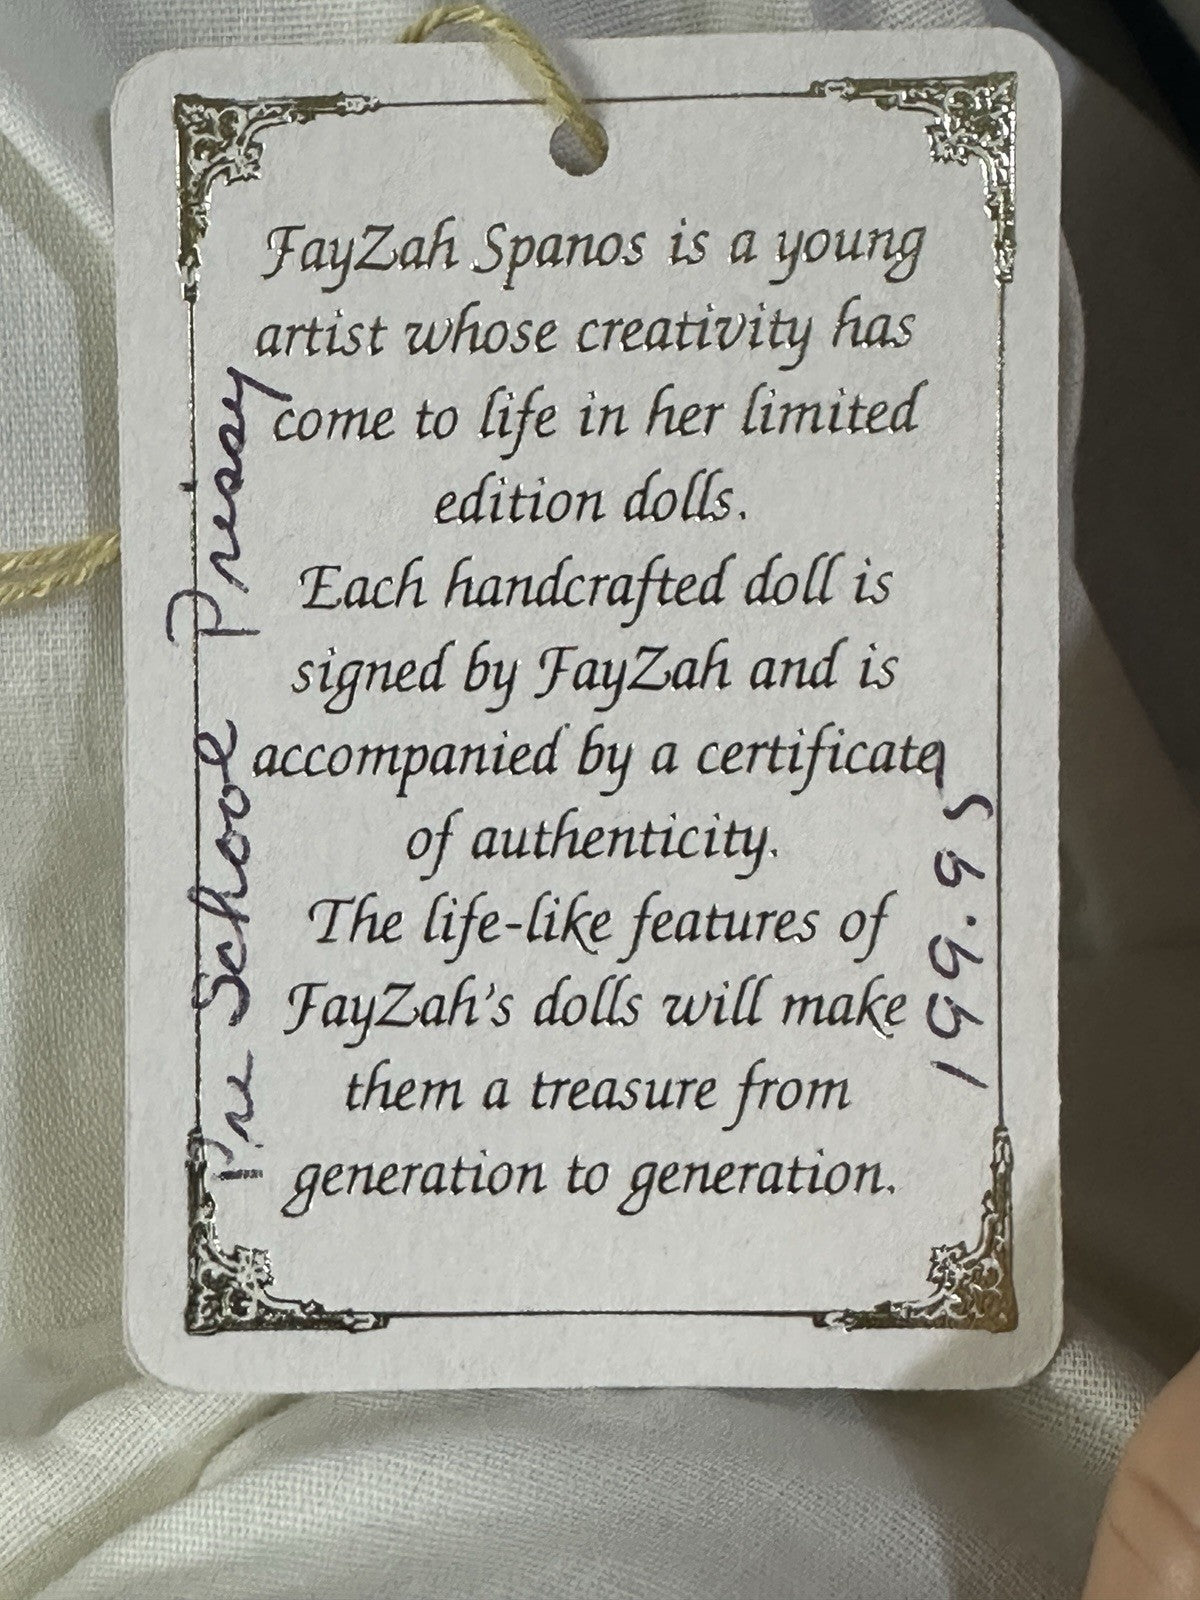 FayZah Spanos is a young
artist whose creativity has
come to life in her limited
edition dolls.
Each handcrafted doll is
signed by FayZah and is
accompanied by a certificate
of authenticity.
The life-like features of
FayZah's dolls will make
them a treasure from
generation to generation.
Pre School Prissy
199.95